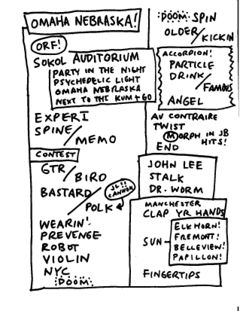 OMAHA NEBRASKA!
ORF!
SOKOL AUDITORIUM
PARTY IN THE NIGHT
PSYCHEDELIC LIGHT
OMAHA NEBRASKA
NEXT TO THE KUM + GO
EXPERI
SPINE/
MEMO
CONTEST
GTR/
BIRD
BASTARD/
POLK
WEARIN'
PREVENGE
ROBOT
VIOLIN
NYC
DOOM
DOOM SPIN
OLDER/
KICKIN
ACCORDION!
PARTICLE
DRINK/
FAMOUS
ANGEL
AV CONTRAIRE
TWIST
MORPH IN JB
HITS!
END
JOHN LEE
STALK
DR. WORM
MANCHESTER
CLAP YR HANDS
SUN
ELKHORN!
FREMONT!
BELLEVIEW!
PAPILLON!
FINGERTIPS